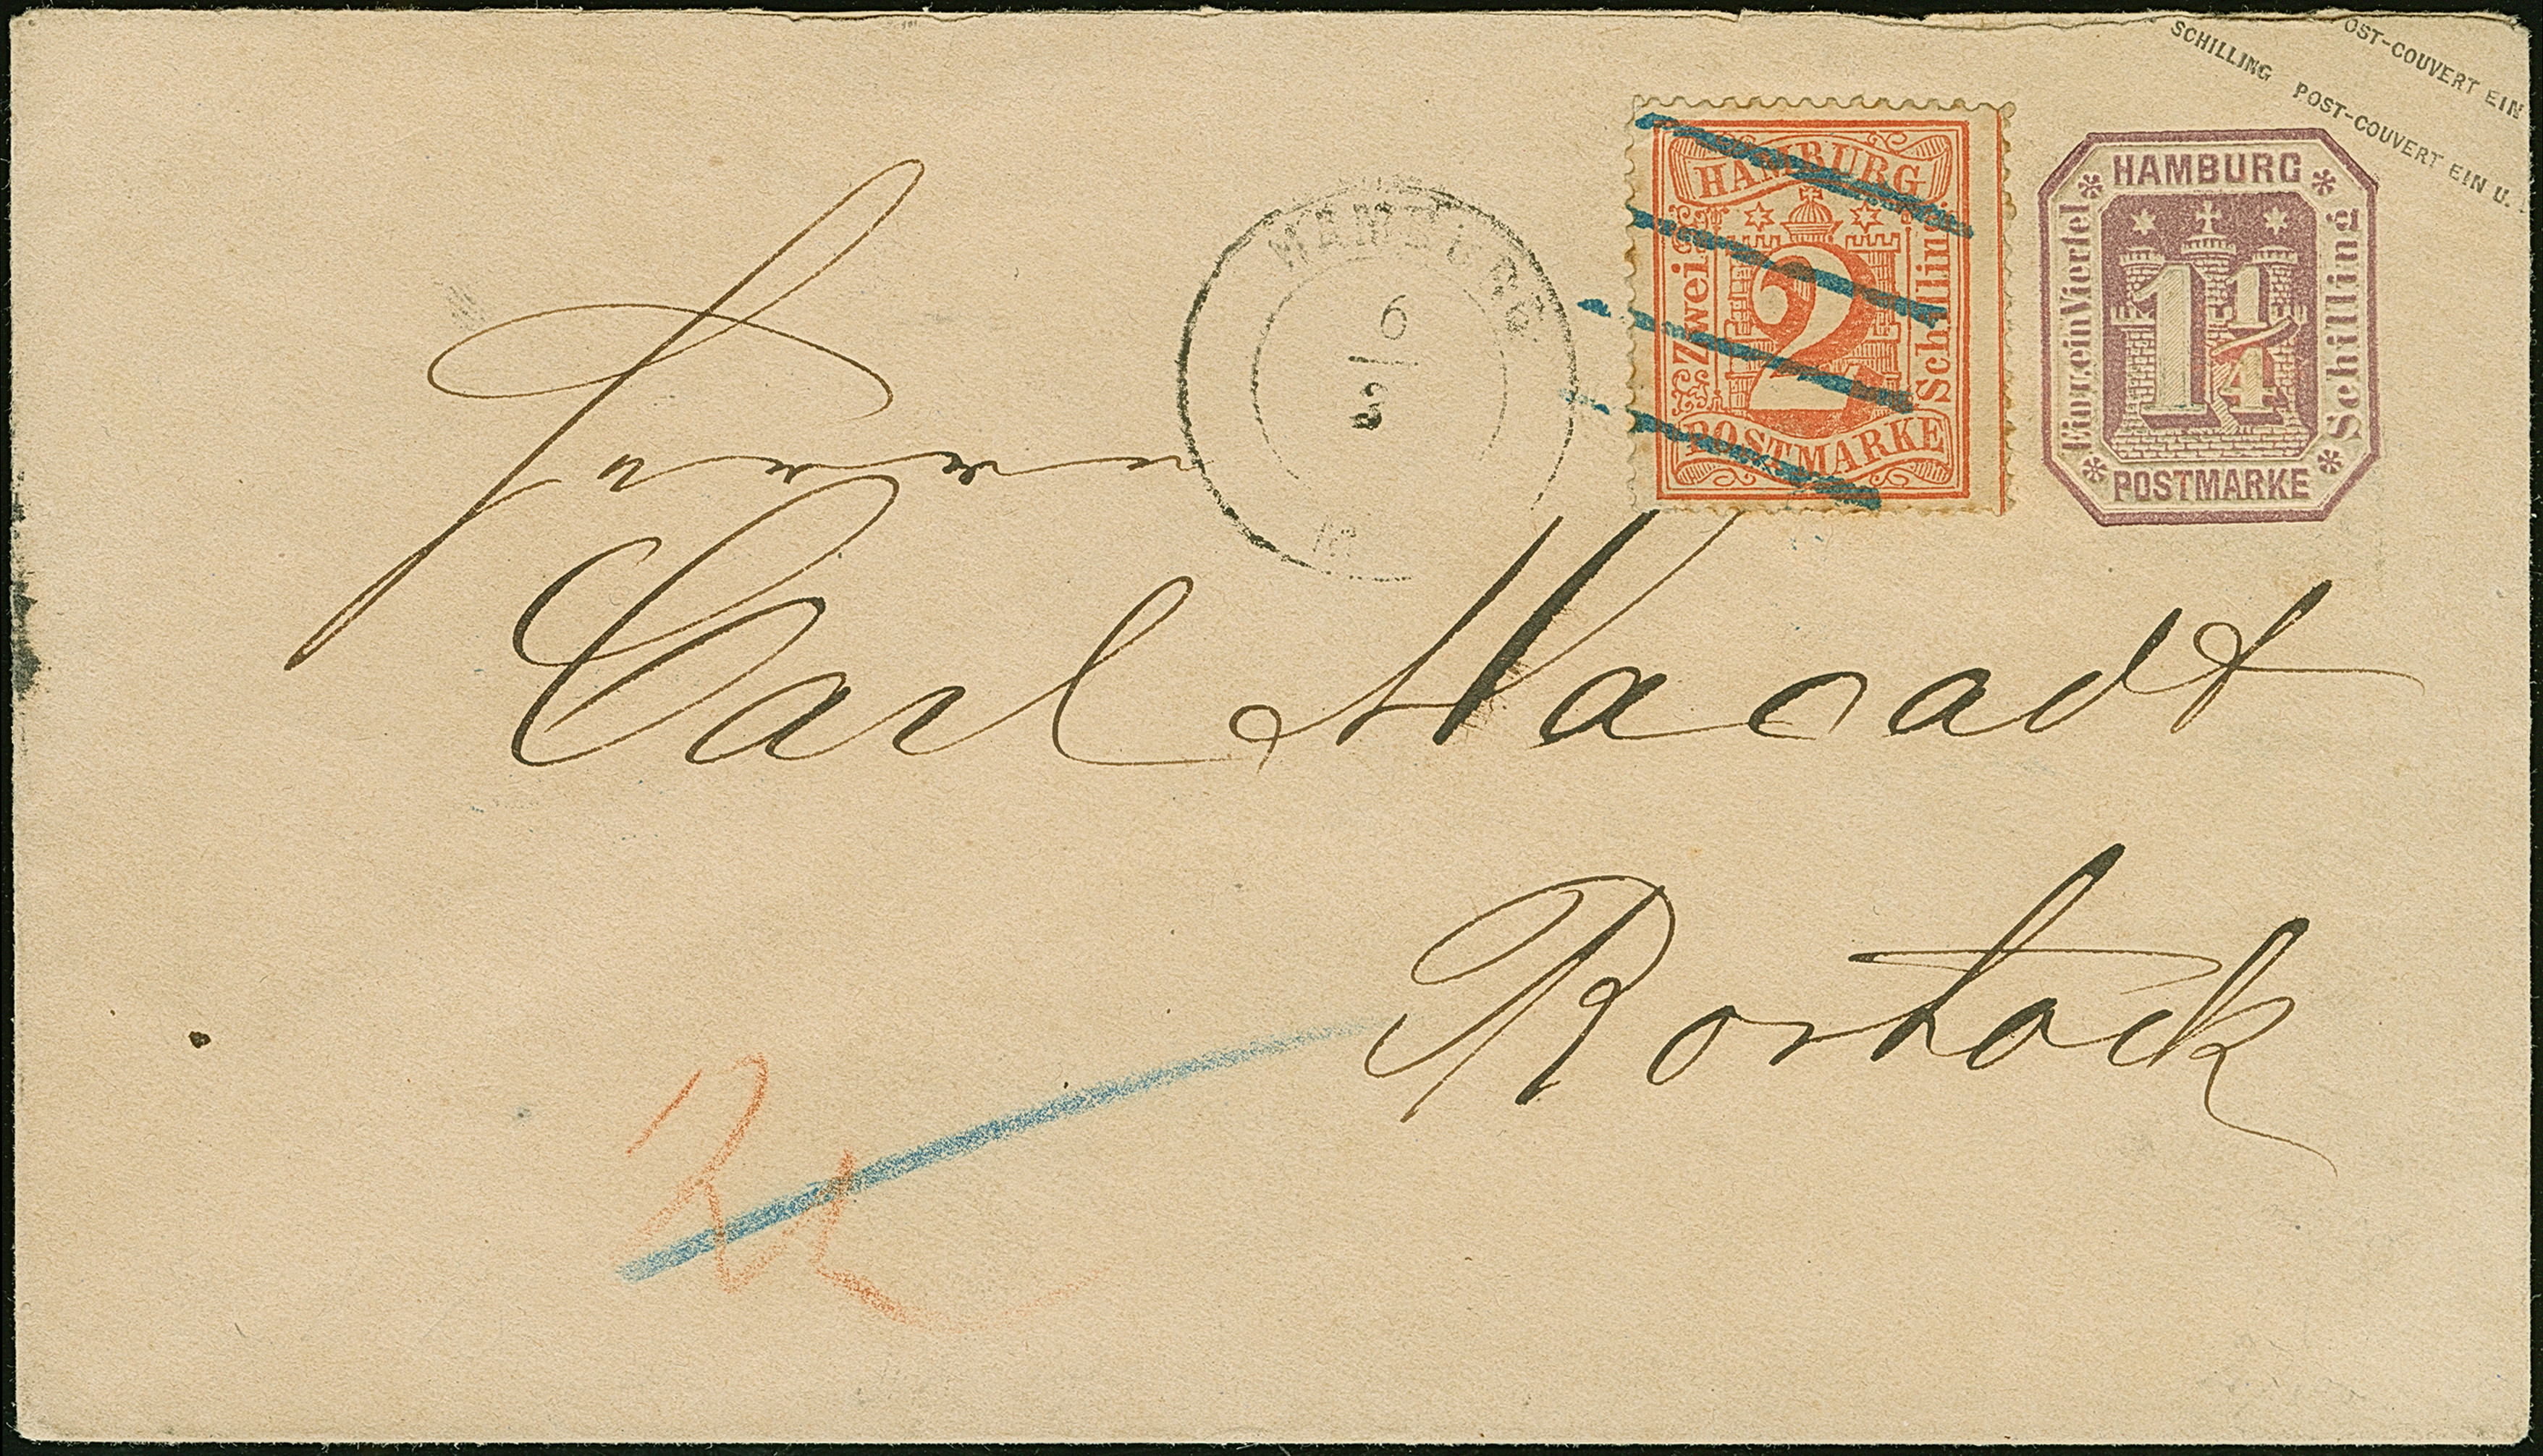 OST-COUVERT EIN
SCHILLING POST-COUVERT EIN U.
HAMBURG
Zwei
2
Schilling
POSTMARKE
HAMBURG
Ein u. ein Viertel
1 1/4
Schilling
POSTMARKE
HAMBURG
6
3
Carl
Rostock